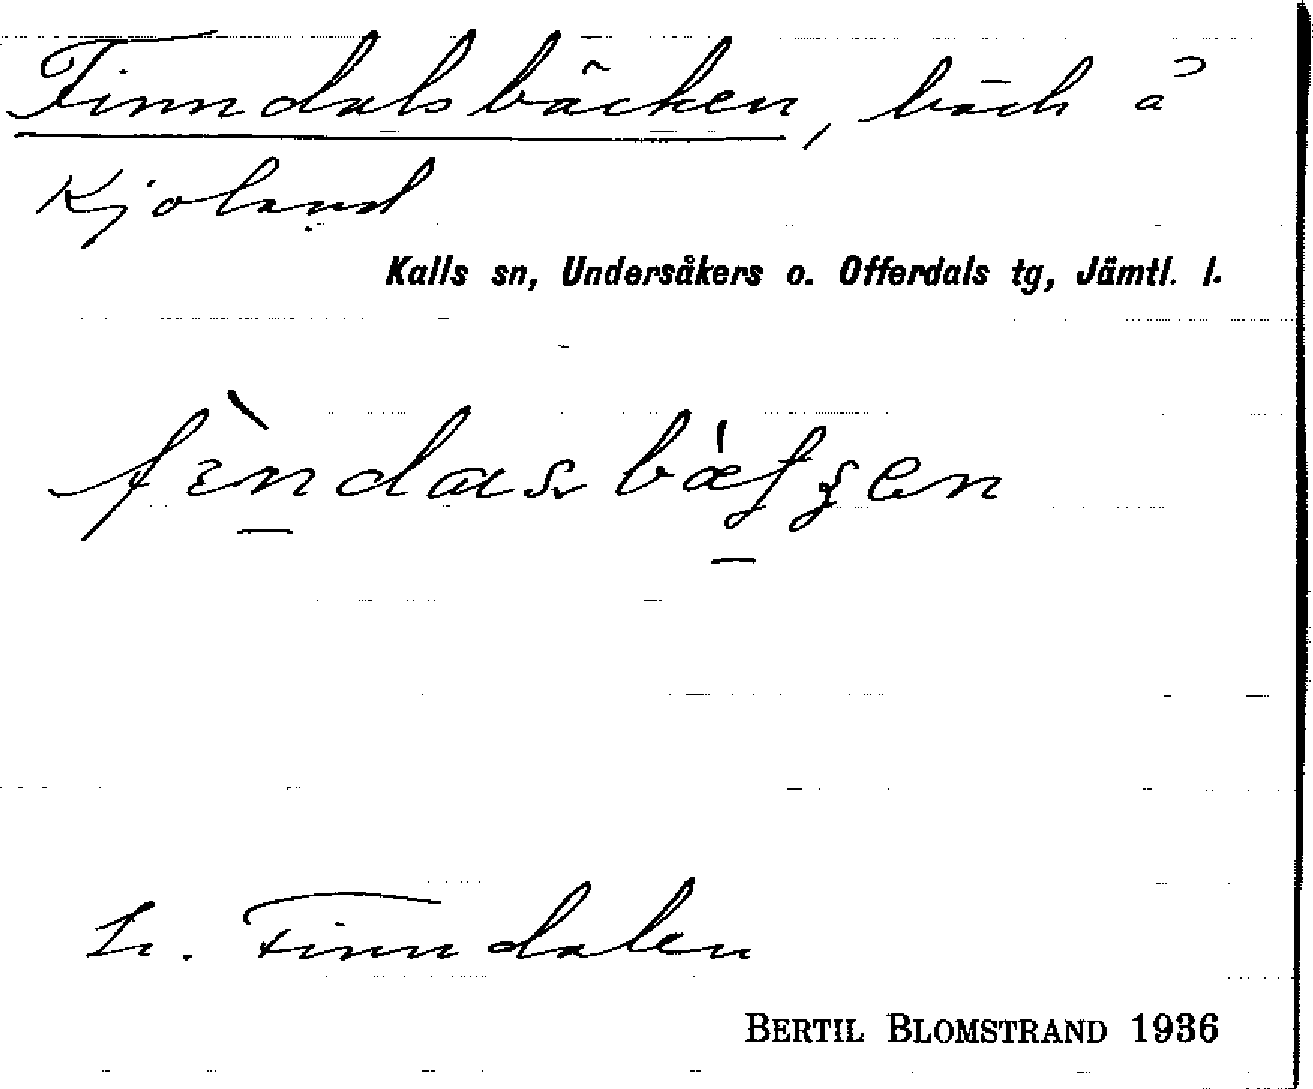 Finndalsbäcken, bäck å
Kjoland
Kalls sn, Undersåkers o. Offerdals tg, Jämtl. l.
Finndalen
BERTIL BLOMSTRAND 1936